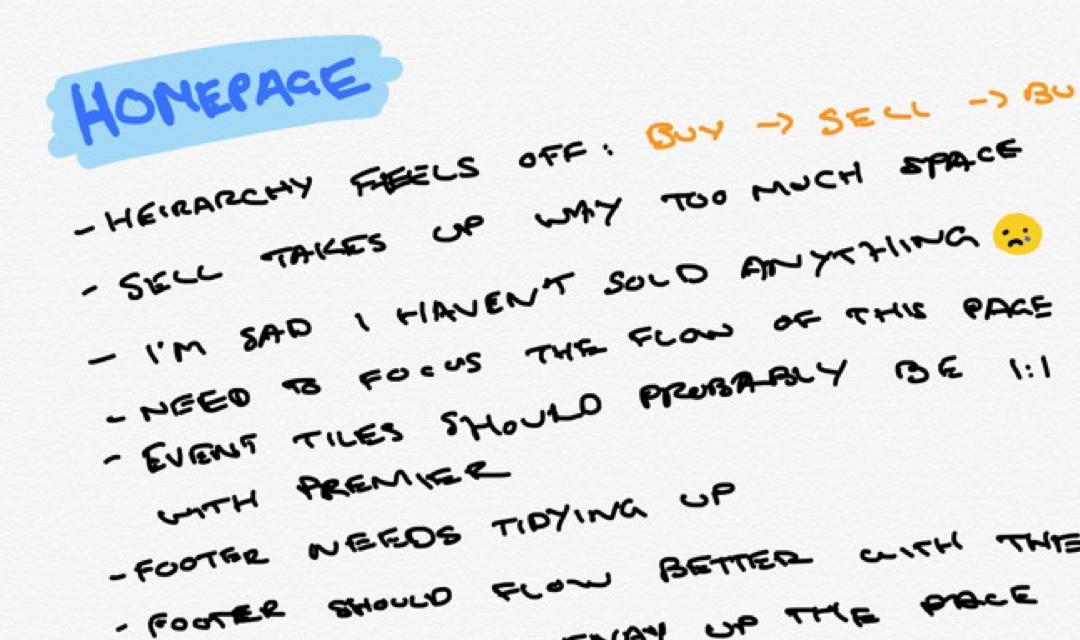 HOMEPAGE
- HEIRARCHY FEELS OFF: BUY -> SELL -> BU
- SELL TAKES UP WAY TOO MUCH SPACE
- I'M SAD I HAVEN'T SOLD ANYTHING
- NEED TO FOCUS THE FLOW OF THIS PAGE
- EVENT TILES SHOULD PROBABLY BE 1:1
WITH PREMIER
- FOOTER NEEDS TIDYING UP
- FOOTER SHOULD FLOW BETTER WITH THE
UP THE PAGE